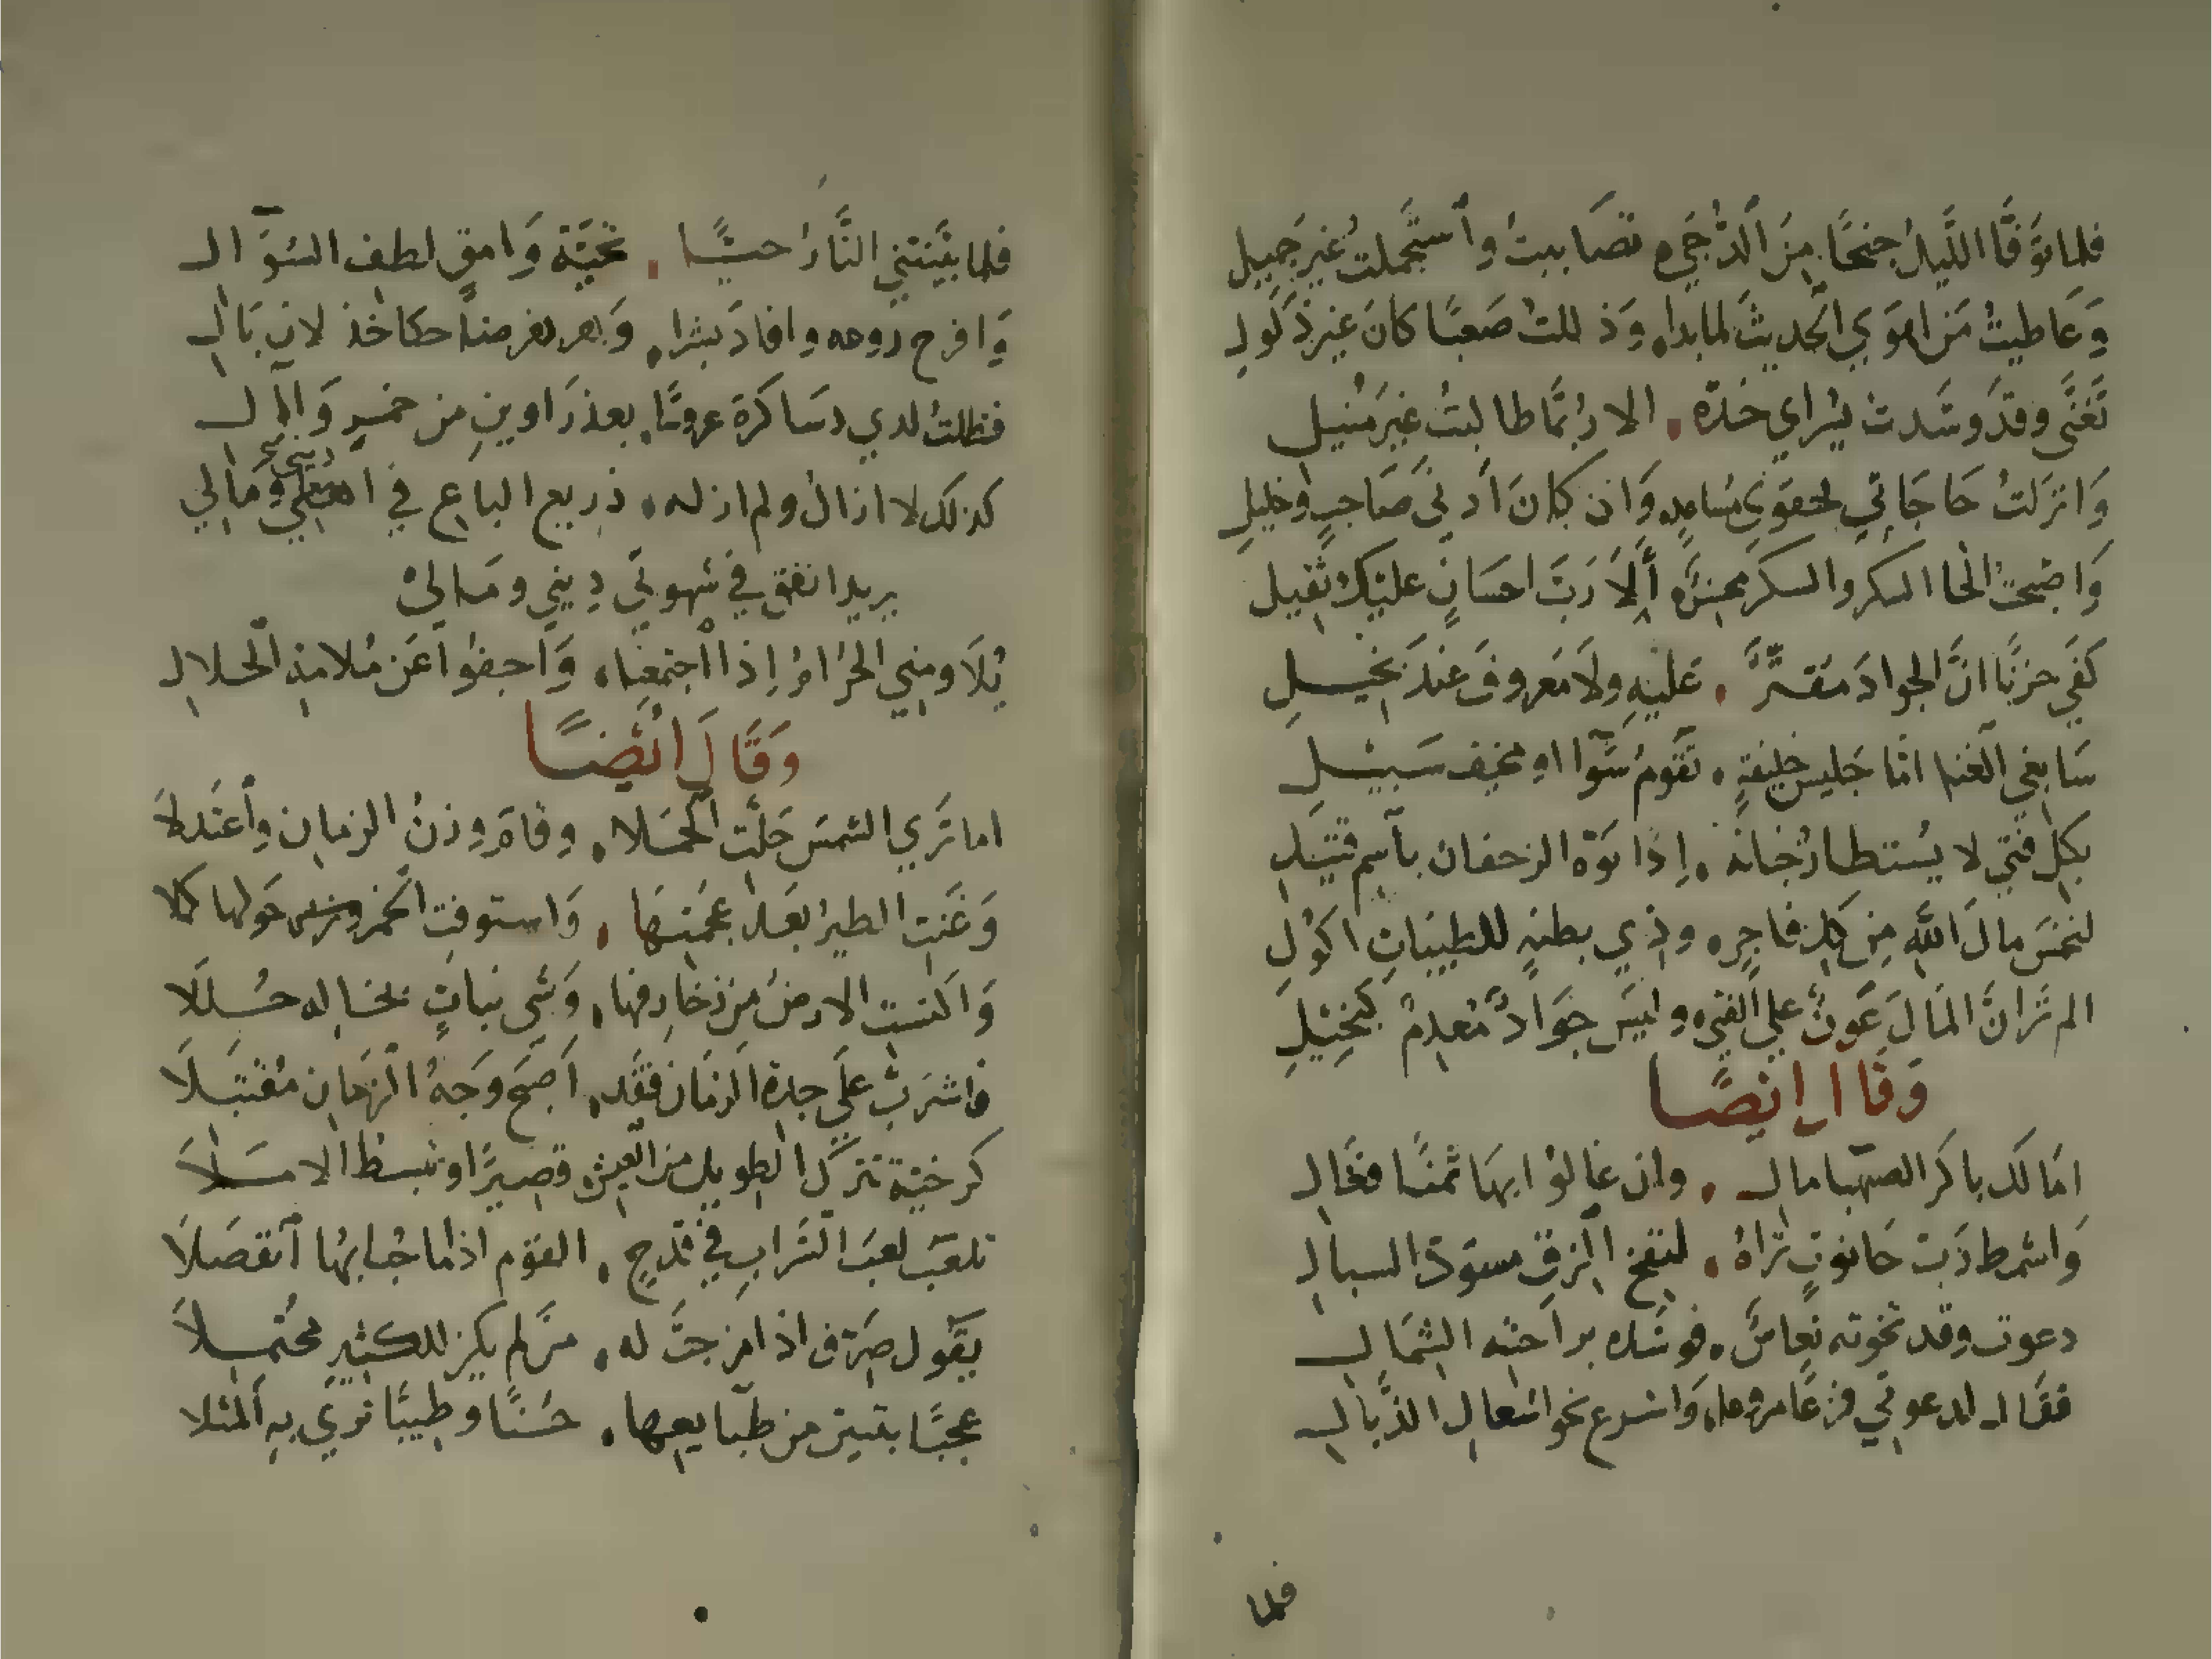 فلما توفا الليل جنحًا من الدجي تصابيت واستجملت غير جميل
وعاطيت من اهوي الحديث لما بدا وذللت صعبًا كان غير ذلول
تغني وقد وسدت يسراي خده الا ربما طالبت غير منيل
وانزلت حاجاتي بحقوي مساعد وان كان ادني صاحب وخليل
واضحت الحا السكر والسكر محسن الا رب احسان عليك ثقيل
كفي حزنًا ان الجواد مقتر عليه ولا معروف عند بخيل
سابغي الغنا اما جليس خليفة نقوم سوآ او مخيف سبيل
بكل فتي لا يستطار جنانه إذا نوه الزحفان باسم قتيل
لنخمس مال الله من كل فاجر وذي بطنة للطيبات اكول
الم تر ان المال عون علي الفتي وليس جواد معدم كبخيل
وقال ايضًا
امالك باكر الصهبا مال وان غالوا بها ثمنًا فغال
واشمط رب حانوت تراه لنفخ الزق مسود السبال
دعوت وقد تخونه نعاس فوسده براحته الشمال
فقال لدعوتي فزعًا مروعا واسرع نحو اشعال الذبال
فلما
فلما بينتني النار حيا تحية وامق لطف السوآل
وافرخ روعه وافاد بشرا
فظلت لدي دساكره عروسًا بعذراوين من خمر وآل
كذلك لا ازال ولم ازل له ذريع الباع في ديني ومالي
يريد انفق في شهوتي ديني ومالي
يلاومني الحرام إذا اجتمعنا واجفوا عن ملامة الحلال
وقال ايضًا
اما تري الشمس حلت الحملا وقام وزن الزمان واعتدلا
وغنت الطير بعد عجمتها واستوفت الخمر حولها كملا
واكتست الارض من زخارفها وشي نبات تخاله حللا
فاشرب علي جدة الزمان فقد اصبح وجه الزمان مقتبلا
كرخية تترك الطويل من العيش قصيرًا وتبسط الاملا
تلعب لعب السراب في قدح القوم اذا ما حبابها اتصلا
يقول صرف اذا مزجت له من لم يكن للكثير محتملا
عجبًا من طبايعها حسنًا وطيبًا تري به المثلا